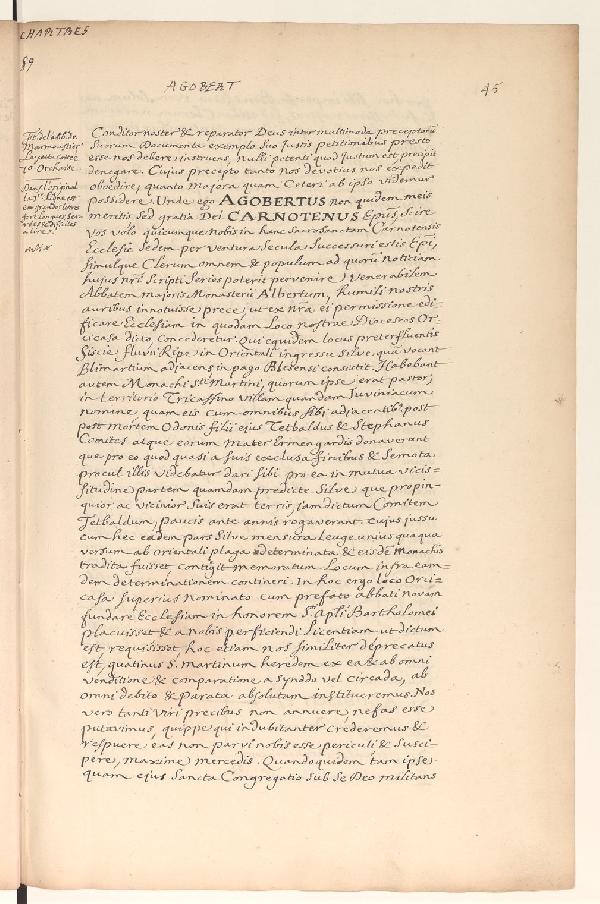 CHAPITRES
59
AGOBERT
45
Tit. de l'Abb. de
Marmoustier
Layette cottee
70 Orchaise
Dans l'original
Conditor noster & reparator Deus inter multimoda preceptorū
Suorum Documenta exemplo suo justis petitionibus presto
esse nos debere instruens, nulli petenti quod justum est precipit
denegare. Cujus precepto tanto nos devotius nos expedit
obœdire, quanto majora quam Ceteri ab ipso videmur
possidere. Unde ego AGOBERTUS non quidem meis
meritis sed gratia Dei CARNOTENUS Epūs, scire
vos volo quicumque nobis in hanc Sacrosanctam Carnotensis
Ecclesie Sedem per ventura Secula Successuri estis Epī,
simulque Clerum omnem & populum ad quorū notitiam
hujus nrī Scripti Series poterit pervenire, Venerabilem
Abbatem majoris Monasterii Albertum, humili nostris
auribus innotuisse prece, ut ex nrā ei permissione edi-
ficare Ecclesiam in quodam Loco nostrae Dioceseos Or-
icasa dicto Concederetur. Qui equidem locus preterfluentis
Siscie fluvii Ripe in Orientali ingressu silve, quā vocant
Blimartium adjacens in pago Blesensi consistit. Habebant
autem Monachi Sti Martini, quorum ipse erat pastor,
in territorio Tricassino Villam quandam Juviniacum
nomine quam eis cum omnibus sibi adjacentibs. post
post mortem Odonis filii ejus Tetbaldus & Stephanus
Comites atque eorum Mater Ermengardis donaverant
que pro eo quod quasi a suis exclusa finibus & Semota
procul illis videbatur dari sibi pro ea in mutua vicis=
situdine partem quamdam predicte Silve, que propin-
quior ac vicinior Suis erat terris, jamdictum Comitem
Tetbaldum paucis ante annis rogaverant. cujus jussu
cum hec eadem pars Silve mensura leuge unius quaqua
versum ab orientali plaga determinata & eisdē Monachis
tradita fuisset, contigit memoratum Locum infra eam=
dem determinationem contineri. In hoc ergo loco Ori=
casa superius nominato cum prefato abbati novam
fundare Ecclesiam in honorem S. Apli Bartholomei
placuisset & a nobis perficiendi Licentiam ut dictum
est requisisset, hoc etiam nos similiter deprecatus
est, quatinus S. Martinum heredem ex ea & ab omni
venditione & comparatione a synodo vel circada, ab
omni debito & parata absolutam institueremus. Nos
vero tanti viri precibus non annuere, nefas esse
putavimus, quippe qui indubitanter crederemus &
respuere eas non parvi nobis esse periculi & Susci=
pere, maxime mercedis. Quandoquidem tam ipse,
quam ejus Sancta Congregatio sub se Deo militans